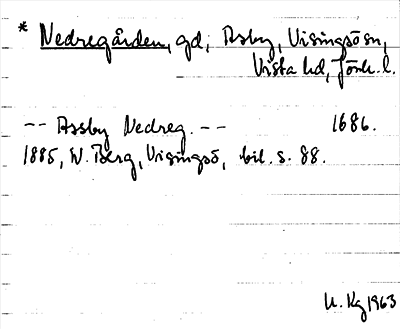 * Nedregården, gd, Åsby, Visingsö sn,
Vista hd, Jönk. l.
-- Assby Nedreg. -- 1686.
1885, W. Berg, Visingsö, bil. s. 88.
U. Kg 1963